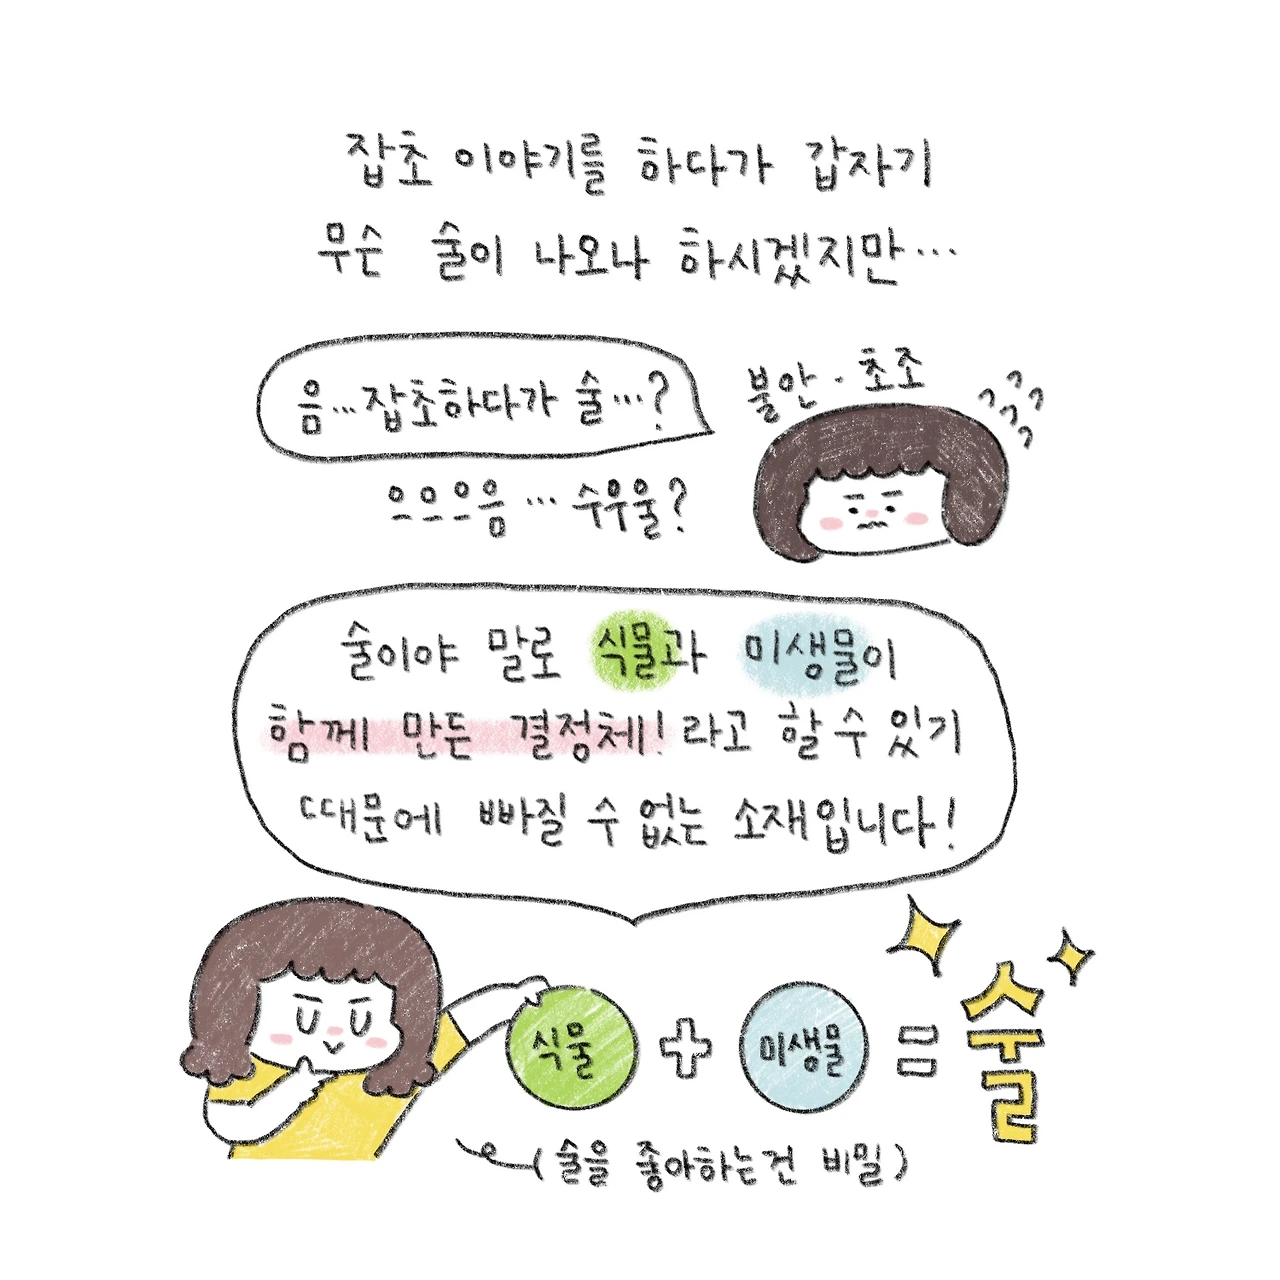 잡초 이야기를 하다가 갑자기
무슨 술이 나오나 하시겠지만...
음...잡초하다가 술...?
불안·초조
으으으음 ... 수우울?
술이야 말로 식물과 미생물이
함께 만든 결정체! 라고 할 수 있기
때문에 빠질 수 없는 소재입니다!
식물 + 미생물 = 술
(술을 좋아하는건 비밀)